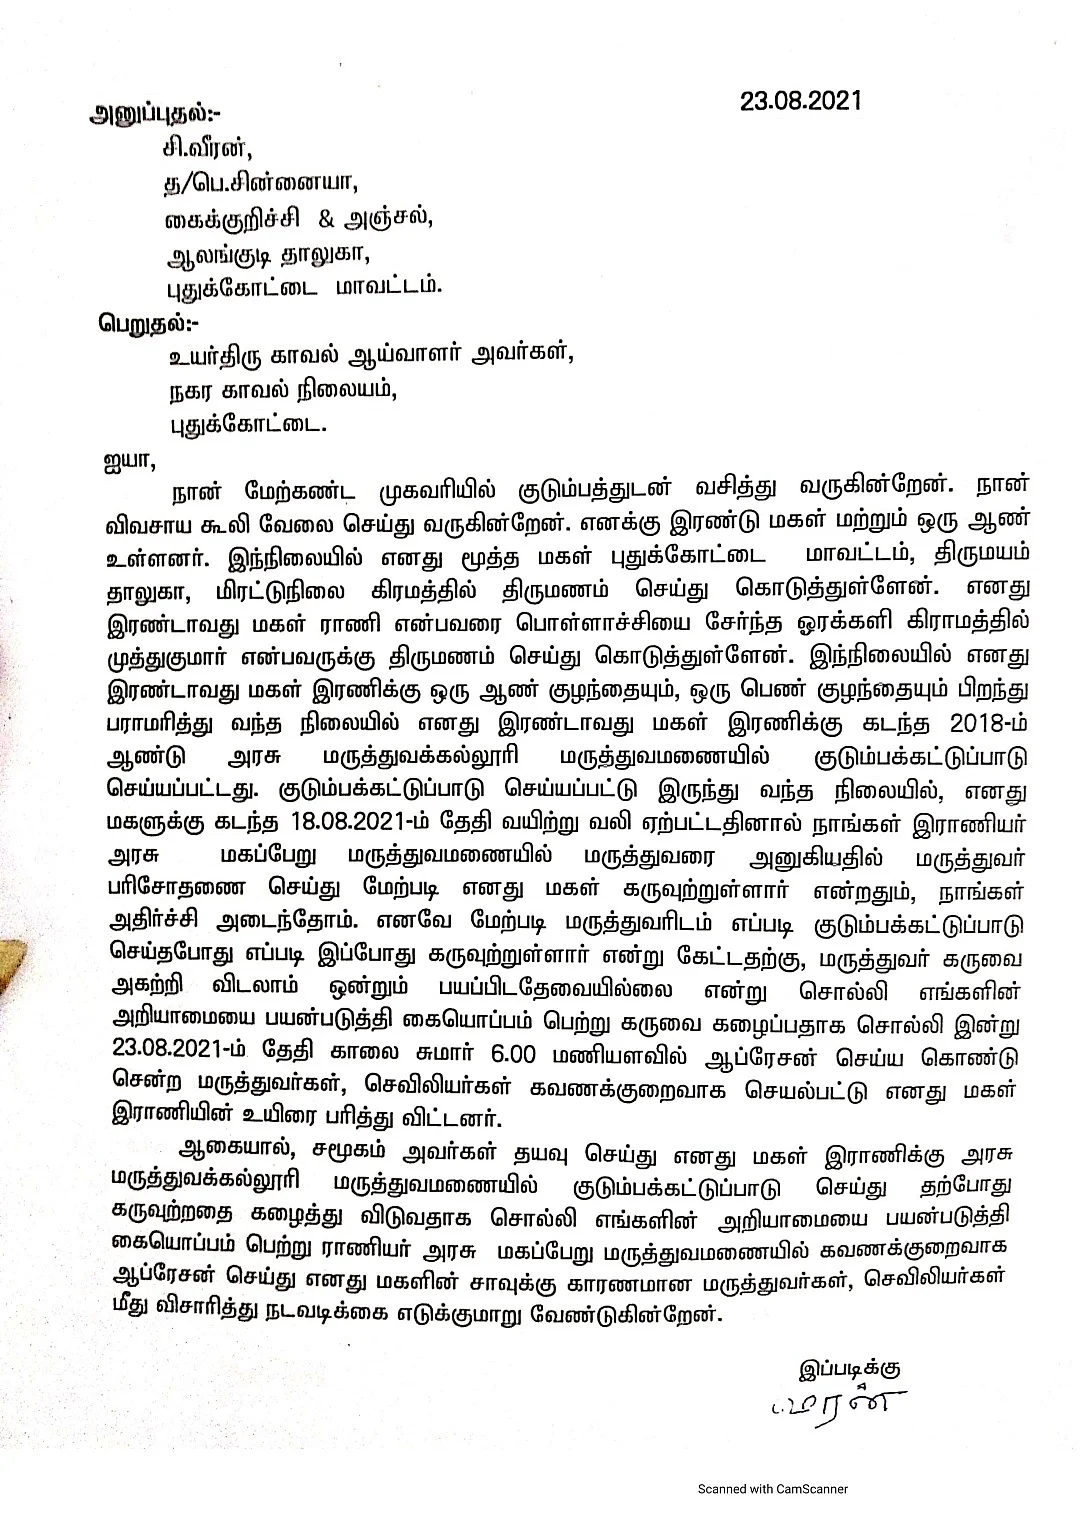 23.08.2021
அனுப்புதல்:-
சி.வீரன்,
த/பெ.சின்னையா,
கைக்குறிச்சி & அஞ்சல்,
ஆலங்குடி தாலுகா,
புதுக்கோட்டை மாவட்டம்.
பெறுதல்:-
உயர்திரு காவல் ஆய்வாளர் அவர்கள்,
நகர காவல் நிலையம்,
புதுக்கோட்டை.
ஐயா,
நான் மேற்கண்ட முகவரியில் குடும்பத்துடன் வசித்து வருகின்றேன். நான்
விவசாய கூலி வேலை செய்து வருகின்றேன். எனக்கு இரண்டு மகள் மற்றும் ஒரு ஆண்
உள்ளனர். இந்நிலையில் எனது மூத்த மகள் புதுக்கோட்டை மாவட்டம், திருமயம்
தாலுகா, மிரட்டுநிலை கிரமத்தில் திருமணம் செய்து கொடுத்துள்ளேன். எனது
இரண்டாவது மகள் ராணி என்பவரை பொள்ளாச்சியை சேர்ந்த ஓரக்களி கிராமத்தில்
முத்துகுமார் என்பவருக்கு திருமணம் செய்து கொடுத்துள்ளேன். இந்நிலையில் எனது
இரண்டாவது மகள் இரணிக்கு ஒரு ஆண் குழந்தையும், ஒரு பெண் குழந்தையும் பிறந்து
பராமரித்து வந்த நிலையில் எனது இரண்டாவது மகள் இரணிக்கு கடந்த 2018-ம்
ஆண்டு அரசு மருத்துவக்கல்லூரி மருத்துவமணையில் குடும்பக்கட்டுப்பாடு
செய்யப்பட்டது. குடும்பக்கட்டுப்பாடு செய்யப்பட்டு இருந்து வந்த நிலையில், எனது
மகளுக்கு கடந்த 18.08.2021-ம் தேதி வயிற்று வலி ஏற்பட்டதினால் நாங்கள் இராணியர்
அரசு மகப்பேறு மருத்துவமணையில் மருத்துவரை அனுகியதில் மருத்துவர்
பரிசோதணை செய்து மேற்படி எனது மகள் கருவுற்றுள்ளார் என்றதும், நாங்கள்
அதிர்ச்சி அடைந்தோம். எனவே மேற்படி மருத்துவரிடம் எப்படி குடும்பக்கட்டுப்பாடு
செய்தபோது எப்படி இப்போது கருவுற்றுள்ளார் என்று கேட்டதற்கு, மருத்துவர் கருவை
அகற்றி விடலாம் ஒன்றும் பயப்பிடதேவையில்லை என்று சொல்லி எங்களின்
அறியாமையை பயன்படுத்தி கையொப்பம் பெற்று கருவை கழைப்பதாக சொல்லி இன்று
23.08.2021-ம் தேதி காலை சுமார் 6.00 மணியளவில் ஆப்ரேசன் செய்ய கொண்டு
சென்ற மருத்துவர்கள், செவிலியர்கள் கவணக்குறைவாக செயல்பட்டு எனது மகள்
இராணியின் உயிரை பரித்து விட்டனர்.
ஆகையால், சமூகம் அவர்கள் தயவு செய்து எனது மகள் இராணிக்கு அரசு
மருத்துவக்கல்லூரி மருத்துவமணையில் குடும்பக்கட்டுப்பாடு செய்து தற்போது
கருவுற்றதை கழைத்து விடுவதாக சொல்லி எங்களின் அறியாமையை பயன்படுத்தி
கையொப்பம் பெற்று ராணியர் அரசு மகப்பேறு மருத்துவமணையில் கவணக்குறைவாக
ஆப்ரேசன் செய்து எனது மகளின் சாவுக்கு காரணமான மருத்துவர்கள், செவிலியர்கள்
மீது விசாரித்து நடவடிக்கை எடுக்குமாறு வேண்டுகின்றேன்.
இப்படிக்கு
Scanned with CamScanner